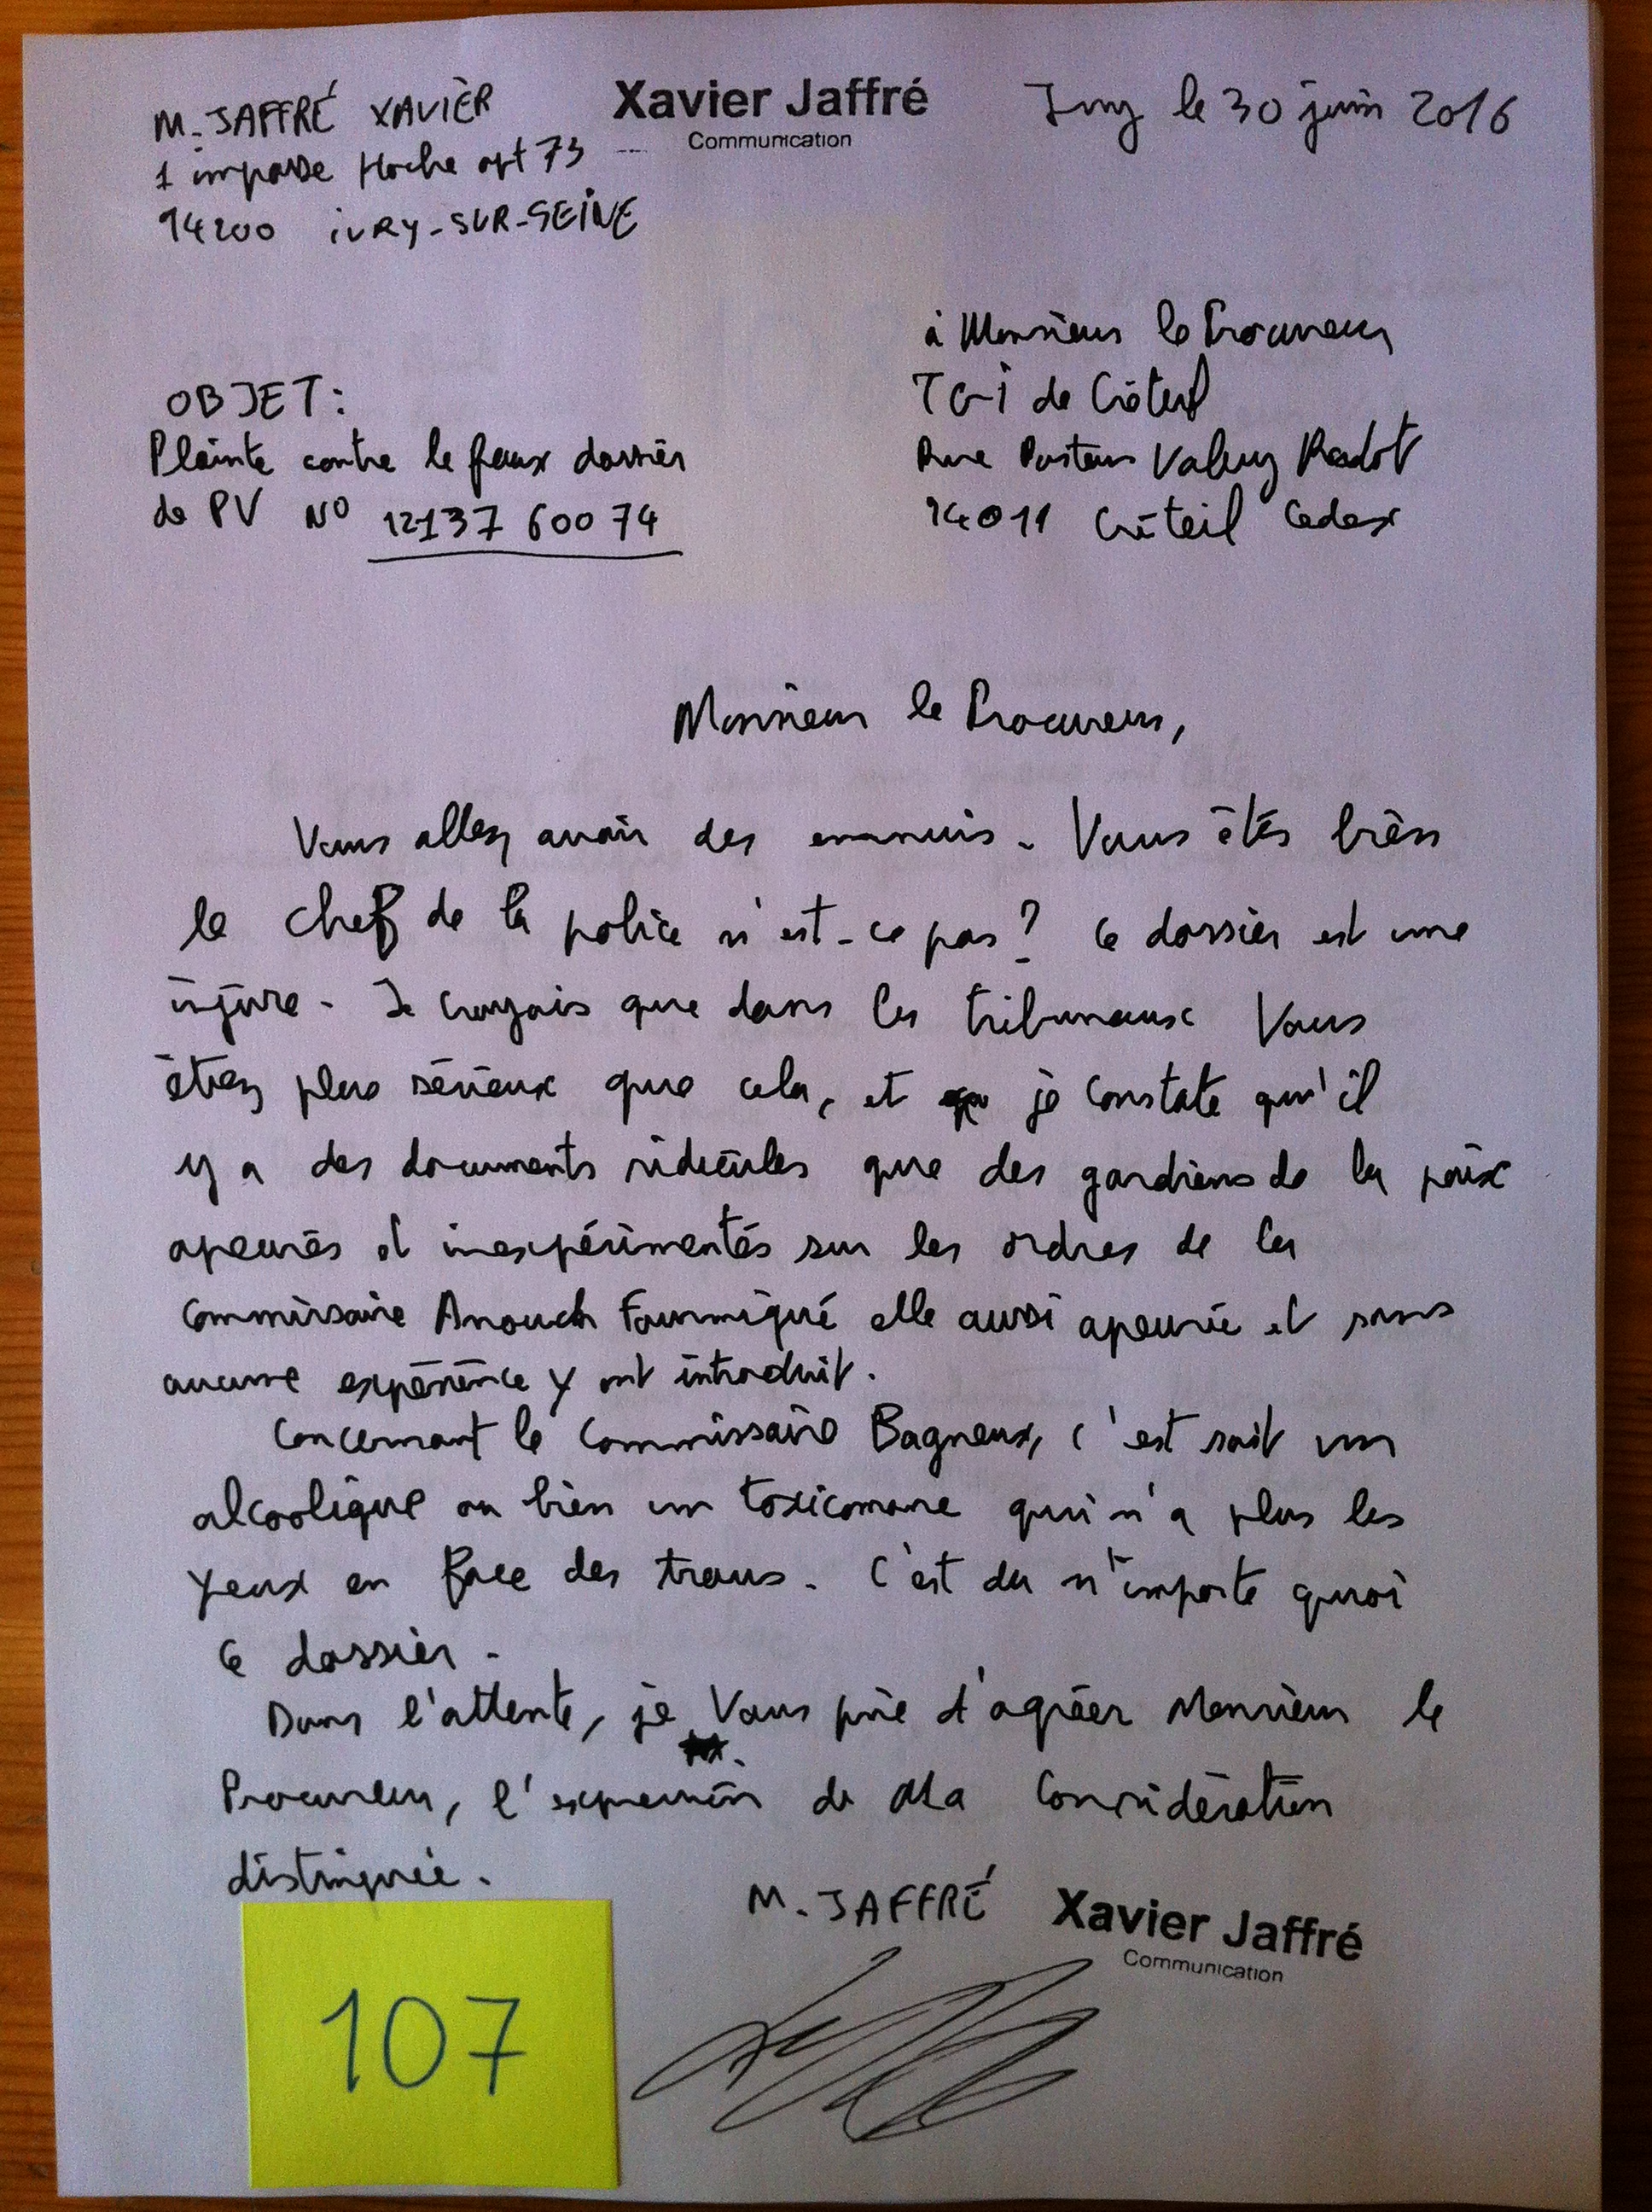 M. JAFFRÉ XAVIER
Xavier Jaffré
Communication
Ivry le 30 juin 2016
1 impasse Hoche apt 73
94200 iVRY-SUR-SEINE
à Monsieur le Procureur
TGI de Créteil
Rue Pasteur Valery Radot
94011 Créteil Cedex
OBJET:
Plainte contre le faux dossier
de PV N° 12137 60074
Monsieur le Procureur,
Vous allez avoir des ennuis. Vous êtes bien
le chef de la police n'est-ce pas? Ce dossier est une
injure. Je croyais que dans les tribunaux Vous
étiez plus sérieux que cela, et je constate qu'il
y a des documents ridicules que des gardiens de la paix
apeurés et inexpérimentés sur les ordres de la
Commissaire Anouck Fourmigué elle aussi apeurée et sans
aucune expérience y ont introduit.
Concernant le Commissaire Bagneux, c'est soit un
alcoolique ou bien un toxicomane qui n'a plus les
yeux en face des trous. C'est du n'importe quoi
ce dossier.
Dans l'attente, je Vous prie d'agréer Monsieur le
Procureur, l'expression de Ma Considération
distinguée.
M. JAFFRÉ
Xavier Jaffré
Communication
107